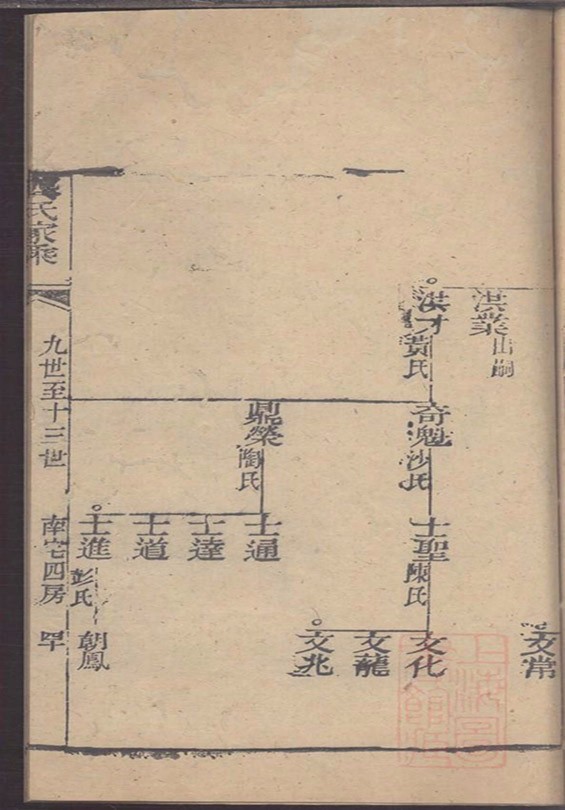 洪業出嗣
洪才黄氏
奇魁沙氏
鼎榮陶氏
士聖陳氏
士通
士達
士道
士進彭氏
文常
文化
文龍
文兆
朝鳳
氏家乘
九世至十三世
南宅四房